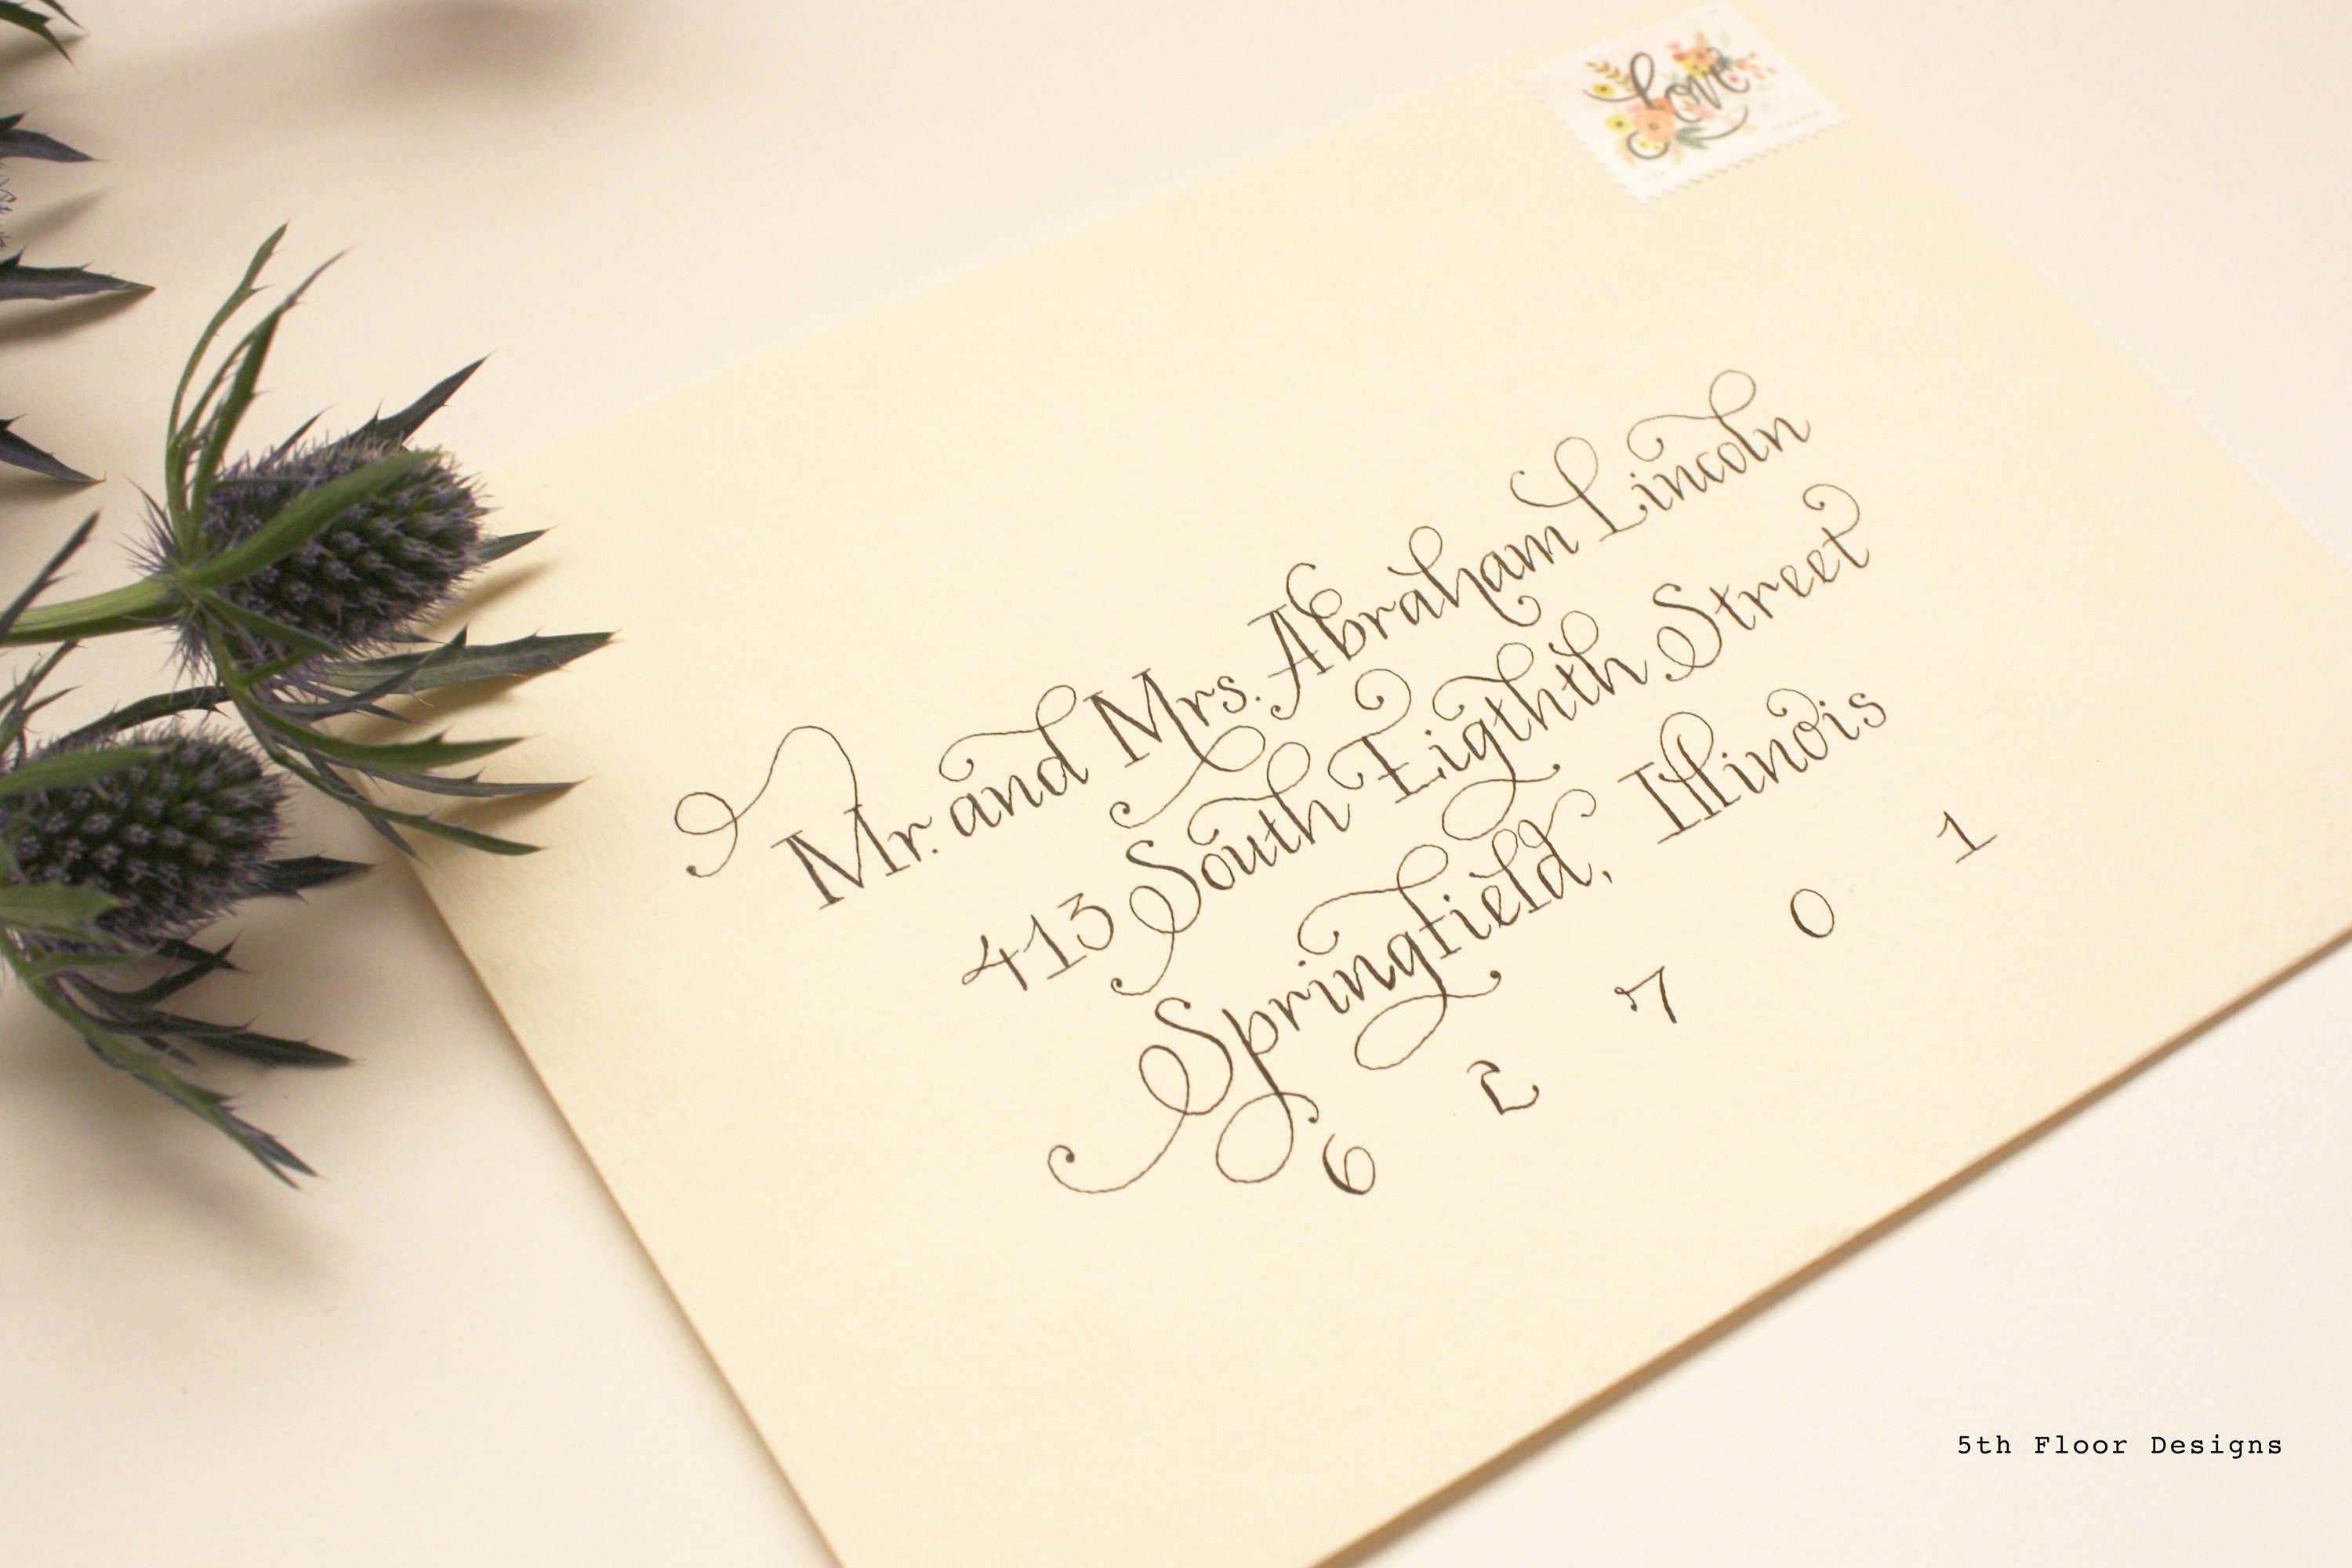 Love
Mr. and Mrs. Abraham Lincoln
413 South Eigthth Street
Springfield, Illinois
6 2 7 0 1
5th Floor Designs